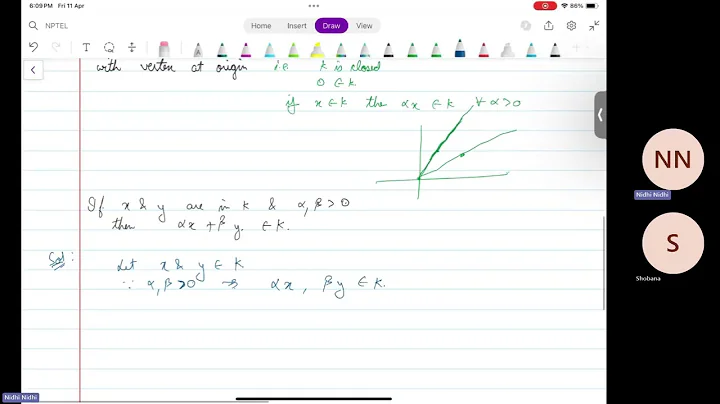 6:09 PM Fri 11 Apr
86%
NPTEL
Home Insert Draw View
with vertex at origin i.e. K is closed
0 ∈ K
if x ∈ K then αx ∈ K ∀ α > 0
If x & y are in K & α, β > 0
then αx + β y ∈ K.
Sol:
Let x & y ∈ K
∵ α, β > 0 ⇒ αx, βy ∈ K.
NN
Nidhi Nidhi
S
Shobana
Nidhi Nidhi